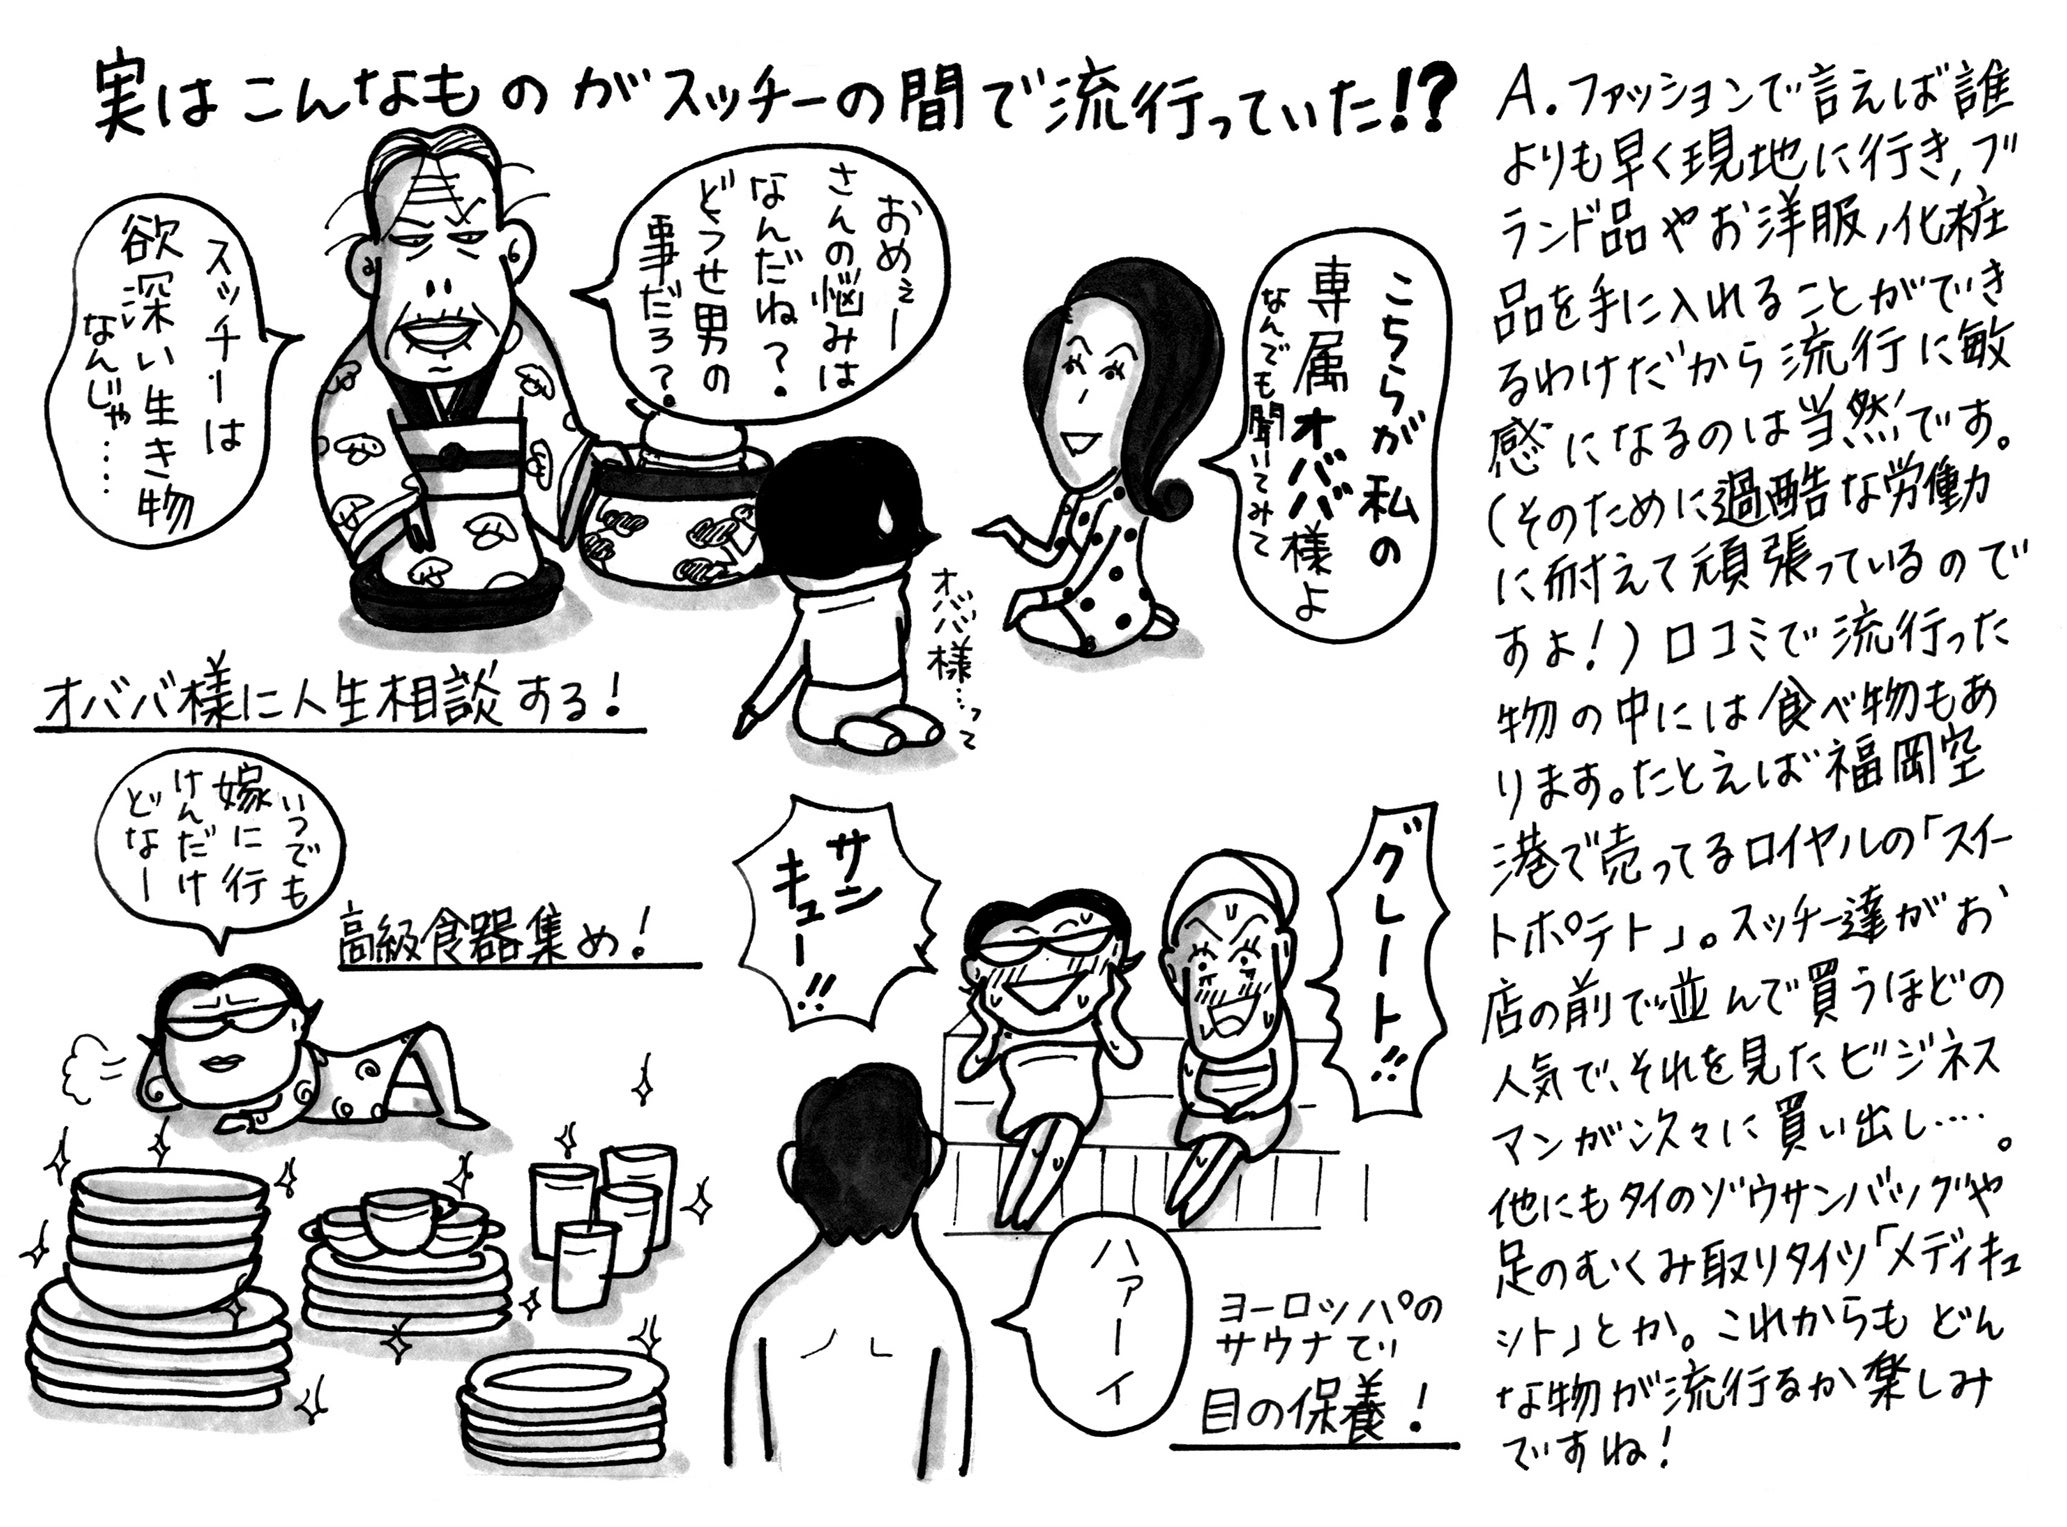 実はこんなものがスッチーの間で流行っていた!?
こちらが私の
専属オババ様よ
なんでも聞いてみて
おめぇー
さんの悩みは
なんだね?
どうせ男の
事だろ?
スッチーは
欲深い生き物
なんじゃ……
オババ様…って
オババ様に人生相談する!
いつでも
嫁に行
けんだけ
どなー
高級食器集め!
グレート!!
サン
キュー!!
ハァーイ
ヨーロッパの
サウナで
目の保養!
A.ファッションで言えば誰
よりも早く現地に行き,ブ
ランド品やお洋服,化粧
品を手に入れることができ
るわけだから流行に敏
感になるのは当然です。
(そのために過酷な労働力
に耐えて頑張っているので
すよ!)口コミで流行った
物の中には食べ物もあ
ります。たとえば福岡空
港で売ってるロイヤルの「スイー
トポテト」。スッチー達がお
店の前で並んで買うほどの
人気で、それを見たビジネス
マンが次々に買い出し….。
他にもタイのゾウサンバッグや
足のむくみ取りタイツ「メディキュ
ット」とか。これからもどん
な物が流行るか楽しみ
ですね!